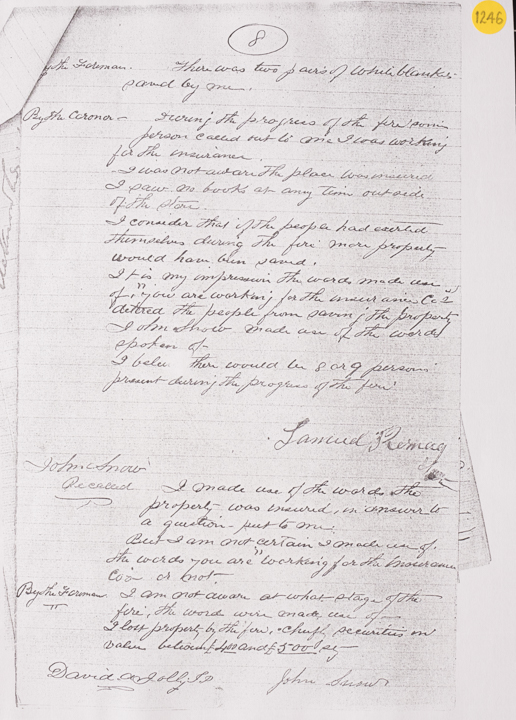 1246
8
By the Foreman. There was two pairs of White blankets
saved by men.
By the Coroner — During the progress of the fire some
person called out to me I was working
for the insurance.
I was not aware the place was insured
I saw no books at any time outside
of the store.
I consider that if the people had exerted
themselves during the fire more property
would have been saved.
It is my impression the words made use
of, "you are working for the insurance Co's"
detered the people from saving the property
John Snow made use of the words
spoken of —
I believe there would be 8 or 9 persons
present during the progress of the fire
Samuel
John Snow
Recalled I made use of the words the
property was insured, in answer to
a question put to me.
But I am not certain I made use of
the words you are "working for the Insurance
Co's" or not.
By the Foreman. I am not aware at what stage of the
fire, the words were made use of —
I lost property by the fire, chiefly securities in
value between £400 and £500
David Jolly
John Snow